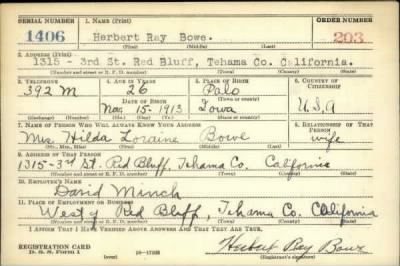 SERIAL NUMBER 1. NAME (Print) ORDER NUMBER
1406 Herbert Ray Bowe. 203
(First) (Middle) (Last)
2. ADDRESS (Print)
1315 - 3rd St. Red Bluff, Tehama Co. California.
(Number and street or R. F. D. number) (Town) (County) (State)
3. TELEPHONE 4. AGE IN YEARS 5. PLACE OF BIRTH 6. COUNTRY OF CITIZENSHIP
392 M 26 Palo
DATE OF BIRTH (Town or county)
Nov. 15-1913 Iowa U.S.A
(Exchange) (Number) (Mo.) (Day) (Yr.) (State or country)
7. NAME OF PERSON WHO WILL ALWAYS KNOW YOUR ADDRESS 8. RELATIONSHIP OF THAT PERSON
Mrs. Hilda Loraine Bowe wife
(Mr., Mrs., Miss) (First) (Middle) (Last)
9. ADDRESS OF THAT PERSON
1315-3rd St. Red Bluff, Tehama Co. California
(Number and street or R. F. D. number) (Town) (County) (State)
10. EMPLOYER'S NAME
David Minch
11. PLACE OF EMPLOYMENT OR BUSINESS
West of Red Bluff, Tehama Co. California
(Number and street or R. F. D. number) (Town) (County) (State)
I AFFIRM THAT I HAVE VERIFIED ABOVE ANSWERS AND THAT THEY ARE TRUE.
REGISTRATION CARD Herbert Ray Bowe
D. S. S. Form 1 (over) (Registrant's signature)